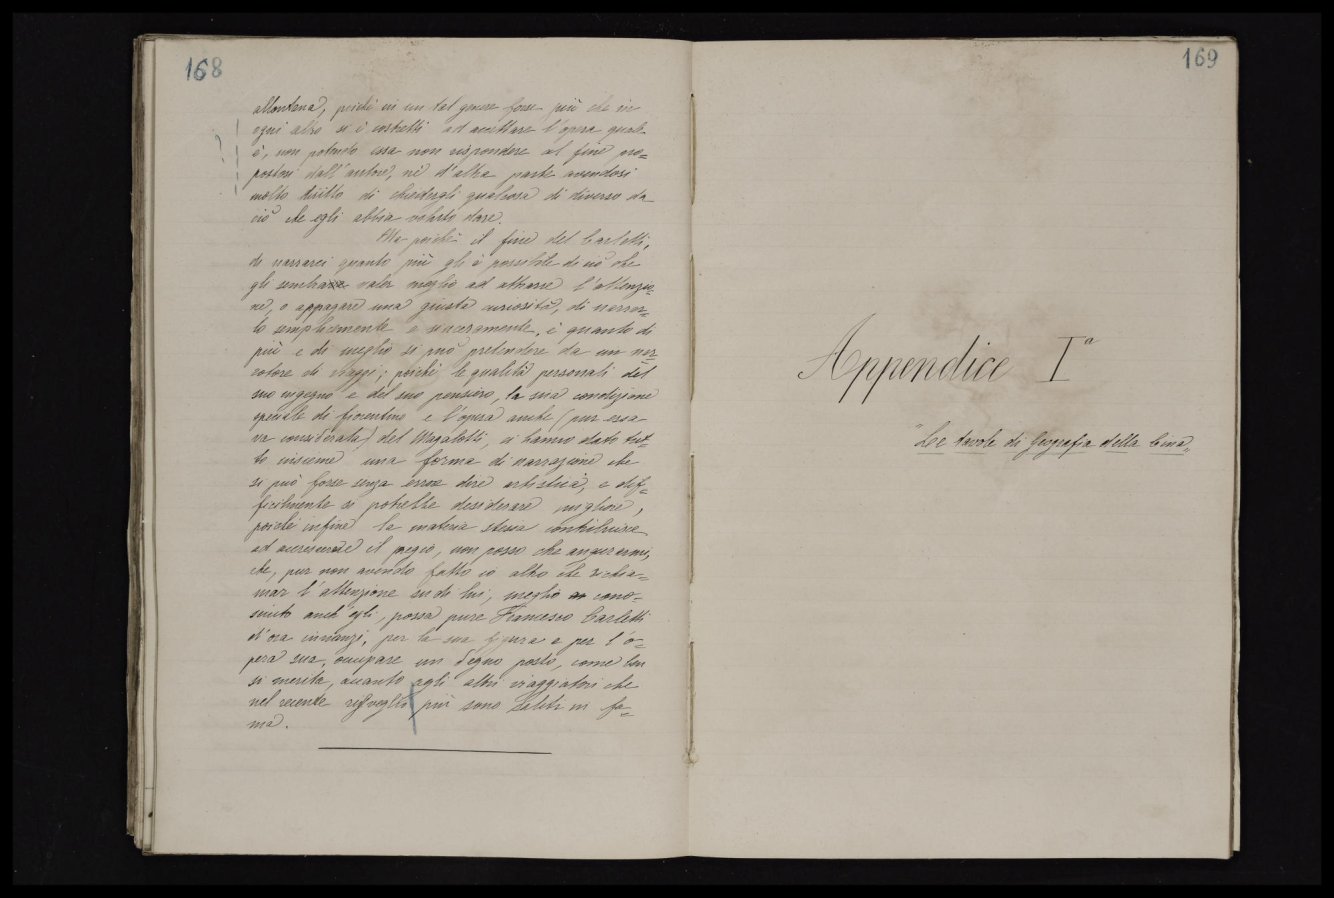 168
allontana, poichè in un tal genere forse più che in
ogni altro si è costretti ad accettare l'opera qual
è, non potendo essa non rispondere al fine pro=
postosi dall'autore, nè d'altra parte avendosi
molto diritto di chiedergli qualcosa di diverso da
ciò che egli abbia voluto dare.
Ma poichè il fine del Carletti,
di narrarci quanto più gli è possibile di ciò che
gli sembra valer meglio ad attrarre l'attenzio=
ne, o appagare una giusta curiosità, di narrar=
lo semplicemente e sinceramente, è quanto di
più e di meglio si può pretendere da un nar=
ratore di viaggi; poichè le qualità personali del
suo ingegno e del suo pensiero, la sua condizione
speciale di fiorentino e l'opera anche (pur essa
va considerata) del Magalotti, ci hanno dato tut=
to insieme una forma di narrazione che
si può forse senza errore dire artistica, e dif=
ficilmente si potrebbe desiderare migliore,
poichè infine la materia stessa contribuisce
ad accrescerne il pregio, non posso che augurarmi,
che, pur non avendo fatto io altro che richia=
mar l'attenzione su di lui, meglio cono=
sciuto anch'egli, possa pure Francesco Carletti
d'ora innanzi, per la sua figura e per l'o=
pera sua, occupare un degno posto, come ben
si merita, accanto agli altri viaggiatori che
nel recente risveglio più sono saliti in fa=
ma.
169
Appendice Iª
"Le tavole di Geografia della Cina"